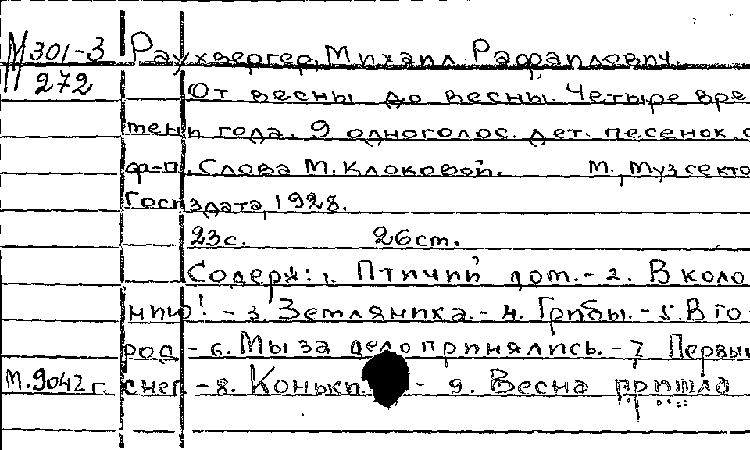 М 301-3 Раухвергер, Михаил Рафаилович.
272 От весны до весны. Четыре вре
мени года. 9 одноголос. дет. песенок с
ф-п. Слова М. Клоковой. М., Музсекто
Госиздата, 1928.
23с. 26см.
Содерж: 1. Птичий дом. - 2. В коло
нию! - 3. Земляника. - 4. Грибы. - 5. В го
род - 6. Мы за дело принялись. - 7 Первый
М.9042г. снег. - 8. Коньки. - 9. Весна пришла